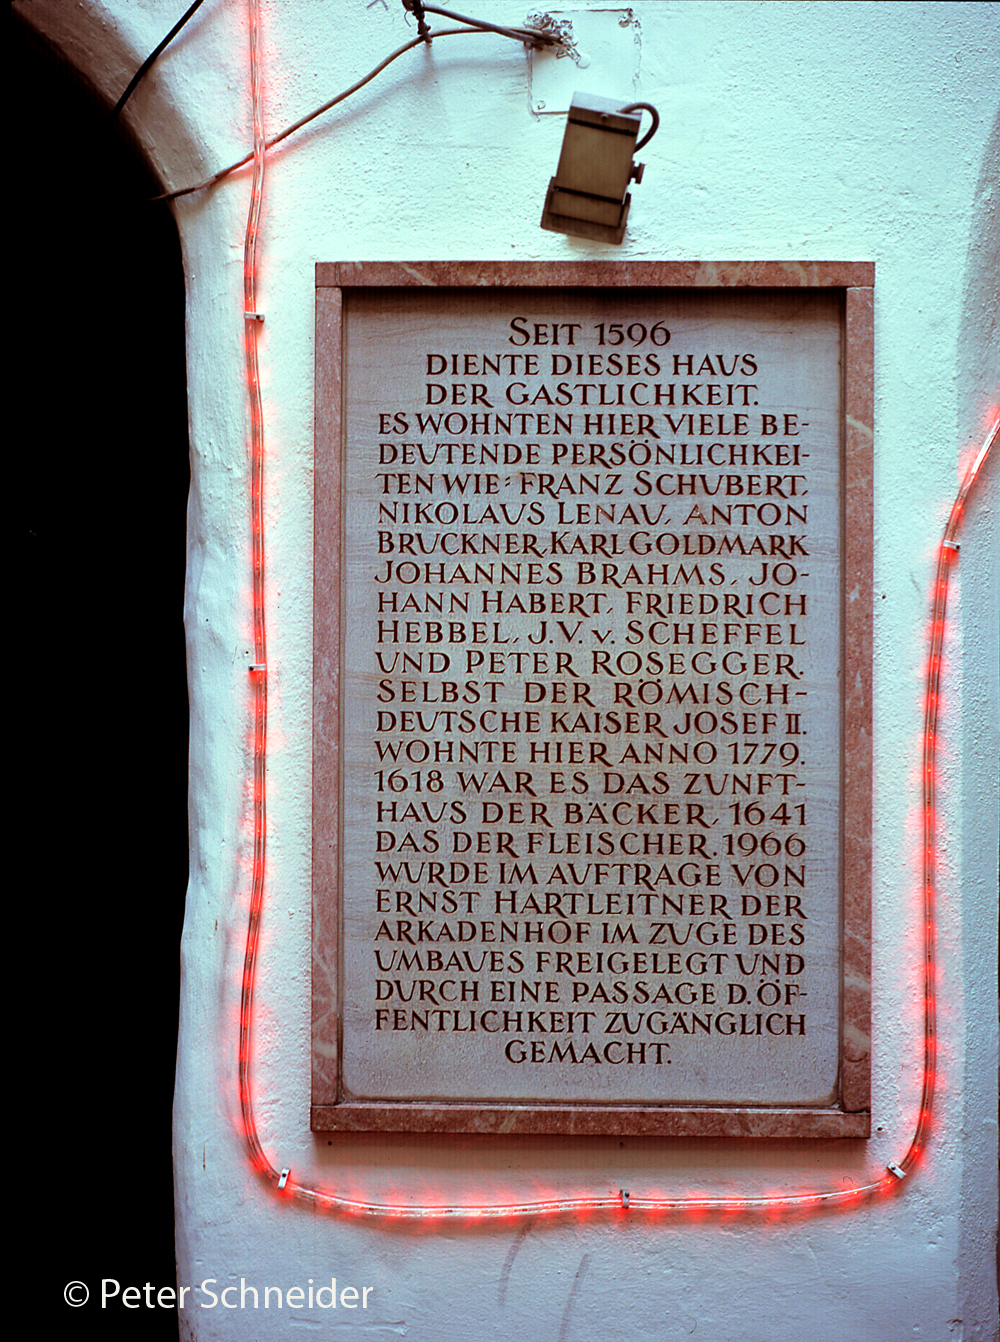 SEIT 1596
DIENTE DIESES HAUS
DER GASTLICHKEIT.
ES WOHNTEN HIER VIELE BE-
DEUTENDE PERSÖNLICHKEI-
TEN WIE: FRANZ SCHUBERT,
NIKOLAUS LENAU, ANTON
BRUCKNER, KARL GOLDMARK
JOHANNES BRAHMS, JO-
HANN HABERT, FRIEDRICH
HEBBEL, J.V. v. SCHEFFEL
UND PETER ROSEGGER.
SELBST DER RÖMISCH-
DEUTSCHE KAISER JOSEF II.
WOHNTE HIER ANNO 1779.
1618 WAR ES DAS ZUNFT-
HAUS DER BÄCKER, 1641
DAS DER FLEISCHER. 1966
WURDE IM AUFTRAGE VON
ERNST HARTLEITNER DER
ARKADENHOF IM ZUGE DES
UMBAUES FREIGELEGT UND
DURCH EINE PASSAGE D. ÖF-
FENTLICHKEIT ZUGÄNGLICH
GEMACHT.
© Peter Schneider